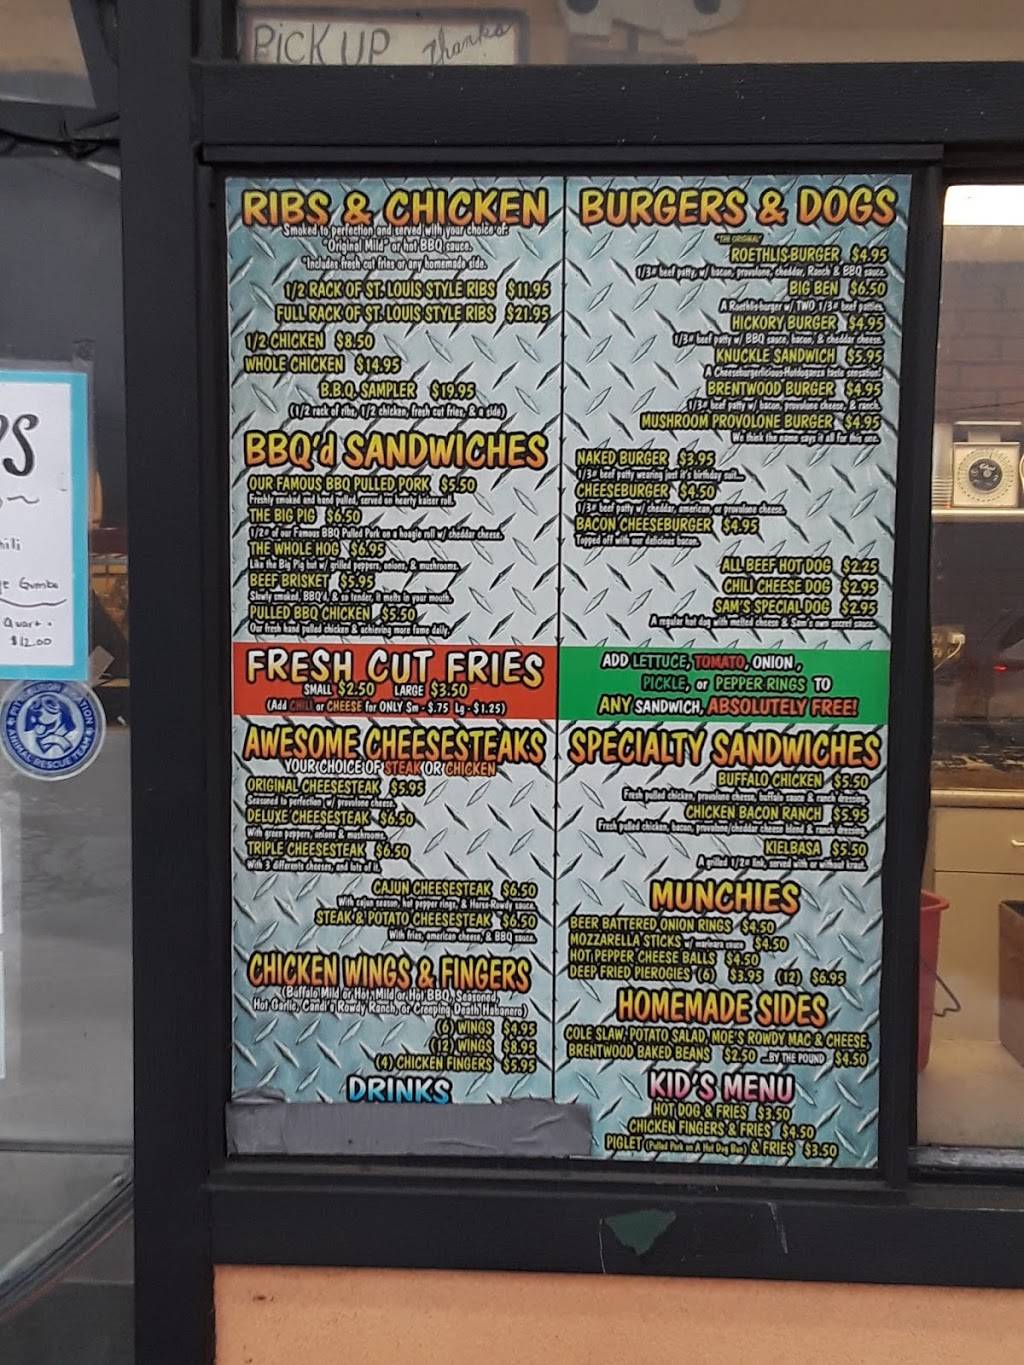 PICK UP Thanks
RIBS & CHICKEN
Smoked to perfection and served with your choice of:
"Original Mild" or hot BBQ sauce.
*Includes fresh cut fries or any homemade side.
1/2 RACK OF ST. LOUIS STYLE RIBS $11.95
FULL RACK OF ST. LOUIS STYLE RIBS $21.95
1/2 CHICKEN $8.50
WHOLE CHICKEN $14.95
B.B.Q. SAMPLER $19.95
(1/2 rack of ribs, 1/2 chicken, fresh cut fries, & a side)
BBQ'd SANDWICHES
OUR FAMOUS BBQ PULLED PORK $5.50
Freshly smoked and hand pulled, served on hearty kaiser roll.
THE BIG PIG $6.50
1/2# of our Famous BBQ Pulled Pork on a hoagie roll w/ cheddar cheese.
THE WHOLE HOG $6.95
Like the Big Pig but w/ grilled peppers, onions, & mushrooms.
BEEF BRISKET $5.95
Slowly smoked, BBQ'd, & so tender, it melts in your mouth.
PULLED BBQ CHICKEN $5.50
Our fresh hand pulled chicken & achieving more fame daily.
FRESH CUT FRIES
SMALL $2.50 LARGE $3.50
(Add CHILI or CHEESE for ONLY Sm - $.75 Lg - $1.25)
AWESOME CHEESESTEAKS
YOUR CHOICE OF STEAK OR CHICKEN
ORIGINAL CHEESESTEAK $5.95
Seasoned to perfection w/ provolone cheese.
DELUXE CHEESESTEAK $6.50
With green peppers, onions & mushrooms.
TRIPLE CHEESESTEAK $6.50
With 3 differents cheeses, and lots of it.
CAJUN CHEESESTEAK $6.50
With cajun season, hot pepper rings, & Horse-Rowdy sauce.
STEAK & POTATO CHEESESTEAK $6.50
With fries, american cheese, & BBQ sauce.
CHICKEN WINGS & FINGERS
(Buffalo Mild or Hot, Mild or Hot BBQ, Seasoned,
Hot Garlic, Candi's Rowdy Ranch, or Creeping Death Habanero)
(6) WINGS $4.95
(12) WINGS $8.95
(4) CHICKEN FINGERS $5.95
DRINKS
BURGERS & DOGS
"THE ORIGINAL"
ROETHLIS-BURGER $4.95
1/3# beef patty, w/ bacon, provolone, cheddar, Ranch & BBQ sauce.
BIG BEN $6.50
A Roethlis-burger w/ TWO 1/3# beef patties.
HICKORY BURGER $4.95
1/3# beef patty w/ BBQ sauce, bacon, & cheddar cheese.
KNUCKLE SANDWICH $5.95
A Cheeseburgerlicious-Hotdoganza taste sensation!
BRENTWOOD BURGER $4.95
1/3# beef patty w/ bacon, provolone cheese, & ranch.
MUSHROOM PROVOLONE BURGER $4.95
We think the name says it all for this one.
NAKED BURGER $3.95
1/3# beef patty wearing just it's birthday suit...
CHEESEBURGER $4.50
1/3# beef patty w/ cheddar, american, or provolone cheese.
BACON CHEESEBURGER $4.95
Topped off with our delicious bacon.
ALL BEEF HOT DOG $2.25
CHILI CHEESE DOG $2.95
SAM'S SPECIAL DOG $2.95
A regular hot dog with melted cheese & Sam's own secret sauce.
ADD LETTUCE, TOMATO, ONION,
PICKLE, or PEPPER RINGS TO
ANY SANDWICH, ABSOLUTELY FREE!
SPECIALTY SANDWICHES
BUFFALO CHICKEN $5.50
Fresh pulled chicken, provolone cheese, buffalo sauce & ranch dressing.
CHICKEN BACON RANCH $5.95
Fresh pulled chicken, bacon, provolone/cheddar cheese blend & ranch dressing.
KIELBASA $5.50
A grilled 1/2# link, served with or without kraut.
MUNCHIES
BEER BATTERED ONION RINGS $4.50
MOZZARELLA STICKS w/ marinara sauce $4.50
HOT PEPPER CHEESE BALLS $4.50
DEEP FRIED PIEROGIES (6) $3.95 (12) $6.95
HOMEMADE SIDES
COLE SLAW, POTATO SALAD, MOE'S ROWDY MAC & CHEESE,
BRENTWOOD BAKED BEANS $2.50 ...BY THE POUND $4.50
KID'S MENU
HOT DOG & FRIES $3.50
CHICKEN FINGERS & FRIES $4.50
PIGLET (Pulled Pork on A Hot Dog Bun) & FRIES $3.50
Gumbo
Quart
$12.00
ANIMAL RESCUE TEAM